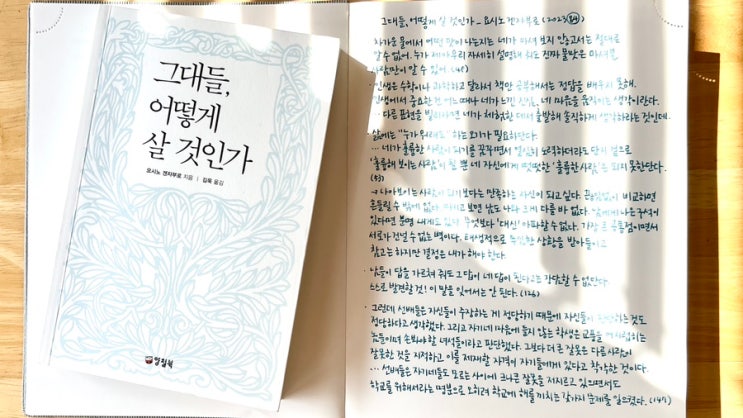 그대들,
어떻게
살 것인가
요시노 겐자부로 지음 | 김욱 옮김
양철북
그대들, 어떻게 살 것인가 _ 요시노 겐자부로 (2023
· 차가운 물에서 어떤 맛이 나는지는 네가 마셔 보지 않고서는 절대로
알 수 없어. 누가 제아무리 자세히 설명해 줘도 진짜 물맛은 마셔본
사람만이 알 수 있어.
· 인생은 수학이나 과학하고 달라서 책만 공부해서는 정답을 배우지 못해.
인생에서 중요한 건 어느 때나 네가 느낀 진실, 네 마음을 움직이는 생각이란다.
다른 표현을 빌리자면 네가 체험한 데서 출발해 솔직하게 생각하라는 것인데.
· 삶에는 "누가 뭐래도" 하는 패기가 필요하단다.
... 네가 훌륭한 사람이 되기를 꿈꾸면서 열심히 노력하더라도 단지 겉으로
'훌륭해 보이는 사람'이 될 뿐 네 자신에게 떳떳한 '훌륭한 사람'은 되지 못한단다.
(53)
→ 나아 보이는 사람이 되기보다는 만족하는 자신이 되고 싶다. 끊임없이 비교하면
흔들릴 수 밖에 없다. 보면 남도 나와 크게 다를 바 없다. 나은 구석이
있다면 분명 내게도 있다. 무엇보다 '대신' 아파할 수 없다. 가장 큰 공통점이면서
서로가 건널 수 없는 벽이다. 태생적으로 상황을 받아들이고
참고는 하지만 결정은 내가 해야 한다.
· 남들이 답을 가르쳐 줘도 그 답이 네 답이 된다고는 장담할 수 없단다.
스스로 발견할 것! 이 말을 잊어서는 안 된다. (126)
· 그런데 선배들은 자신들이 주장하는 게 정당하기 때문에 자신들이 판단하는 것도
정당하다고 생각했다. 그리고 자기네 마음에 들지 않는 학생은 교풍을 어지럽히는
놈들이며 손봐야 할 녀석들이라고 판단했다. 그보다 더 큰 잘못은 다른 사람의
잘못한 것을 지적하고 이를 제재할 자격이 자기들에게 있다고 착각한 것이다.
... 선배들은 자기네들도 모르는 사이에 크나큰 잘못을 저지르고 있으면서도
학교를 위해서라는 명분으로 오히려 학교에 해를 끼치는 갖가지 문제를 일으켰다.